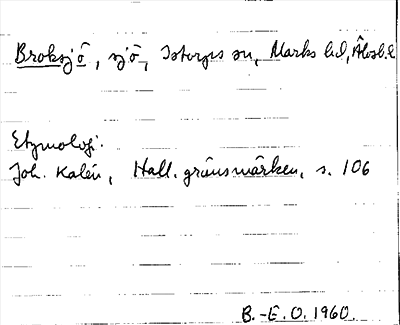 Broksjö, sjö, Istorps sn, Marks hd, Älvsb.l
Etymologi.
Joh. Kalén, Hall. gränsmärken, s. 106
B.-E.O. 1960.